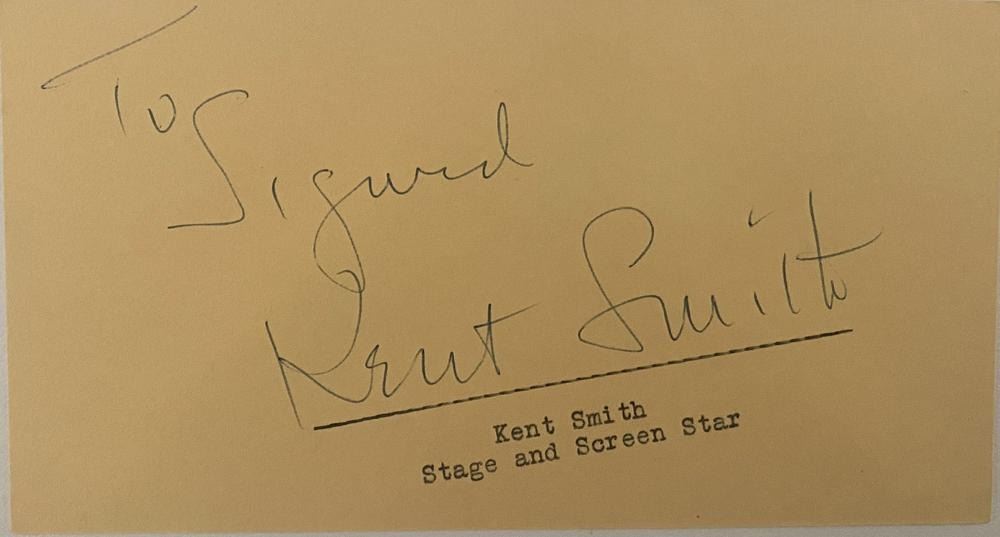 To
Sigurd
Kent Smith
Kent Smith
Stage and Screen Star